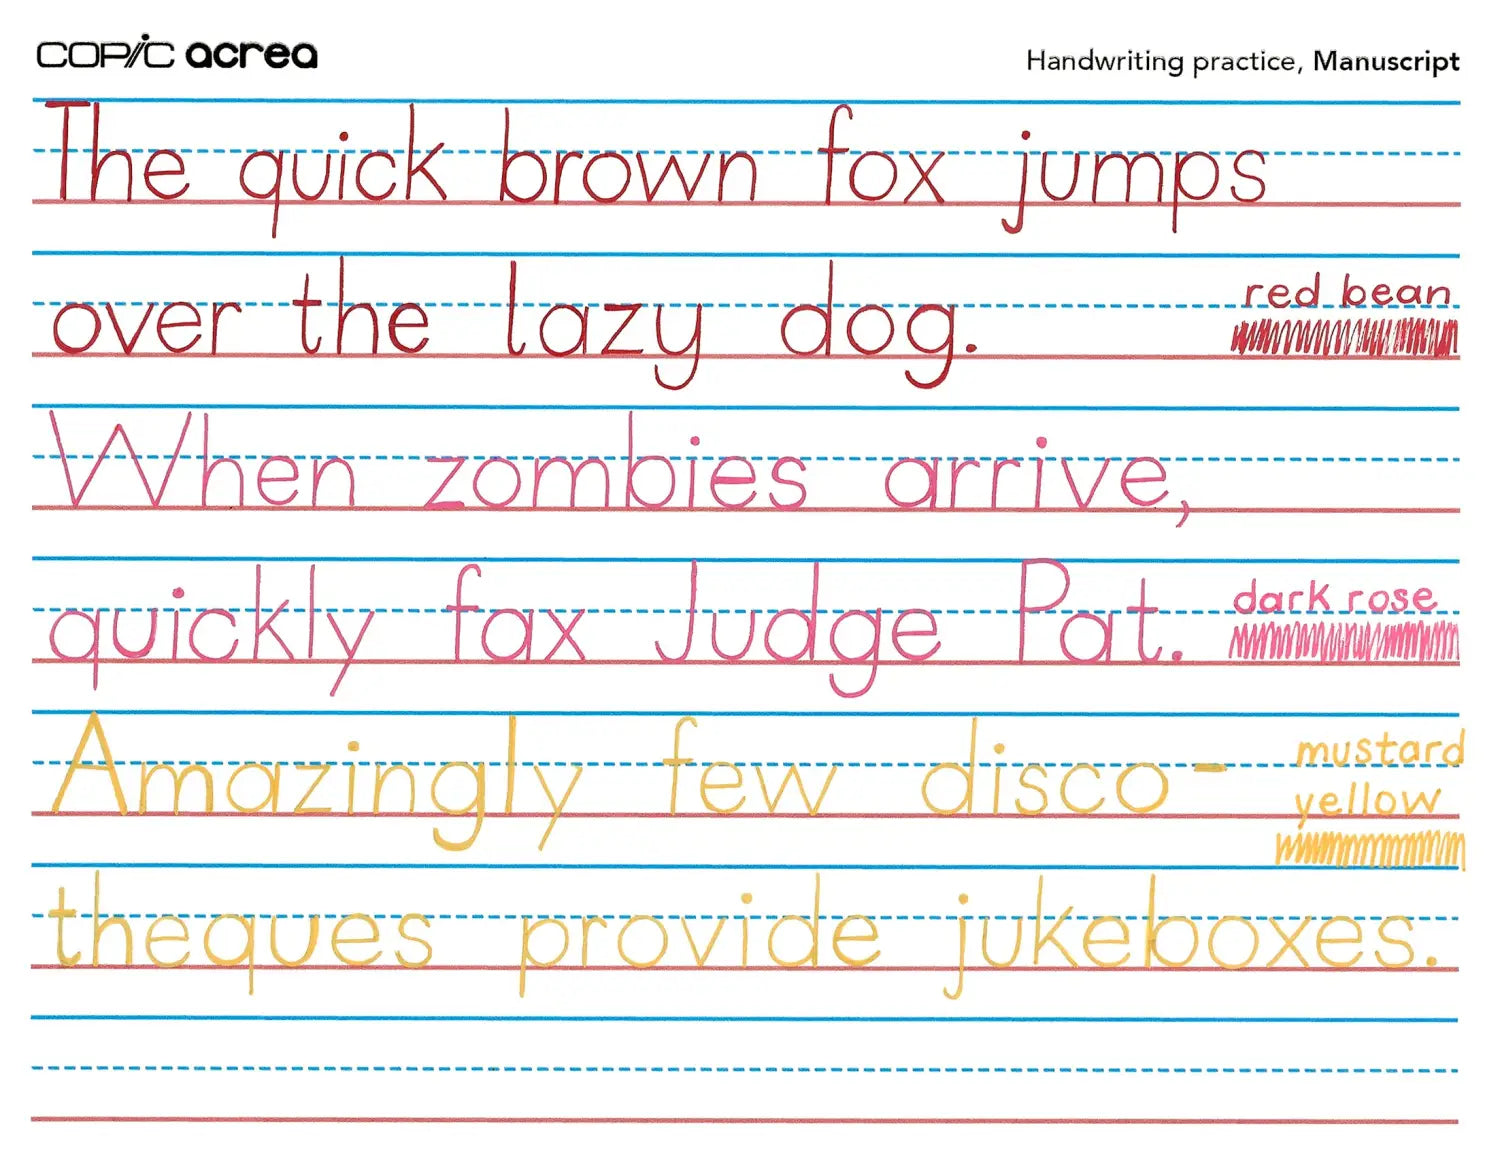 COPIC acrea
Handwriting practice, Manuscript
The quick brown fox jumps
over the lazy dog.
red bean
When zombies arrive,
quickly fax Judge Pat.
dark rose
Amazingly few disco-
mustard
yellow
theques provide jukeboxes.